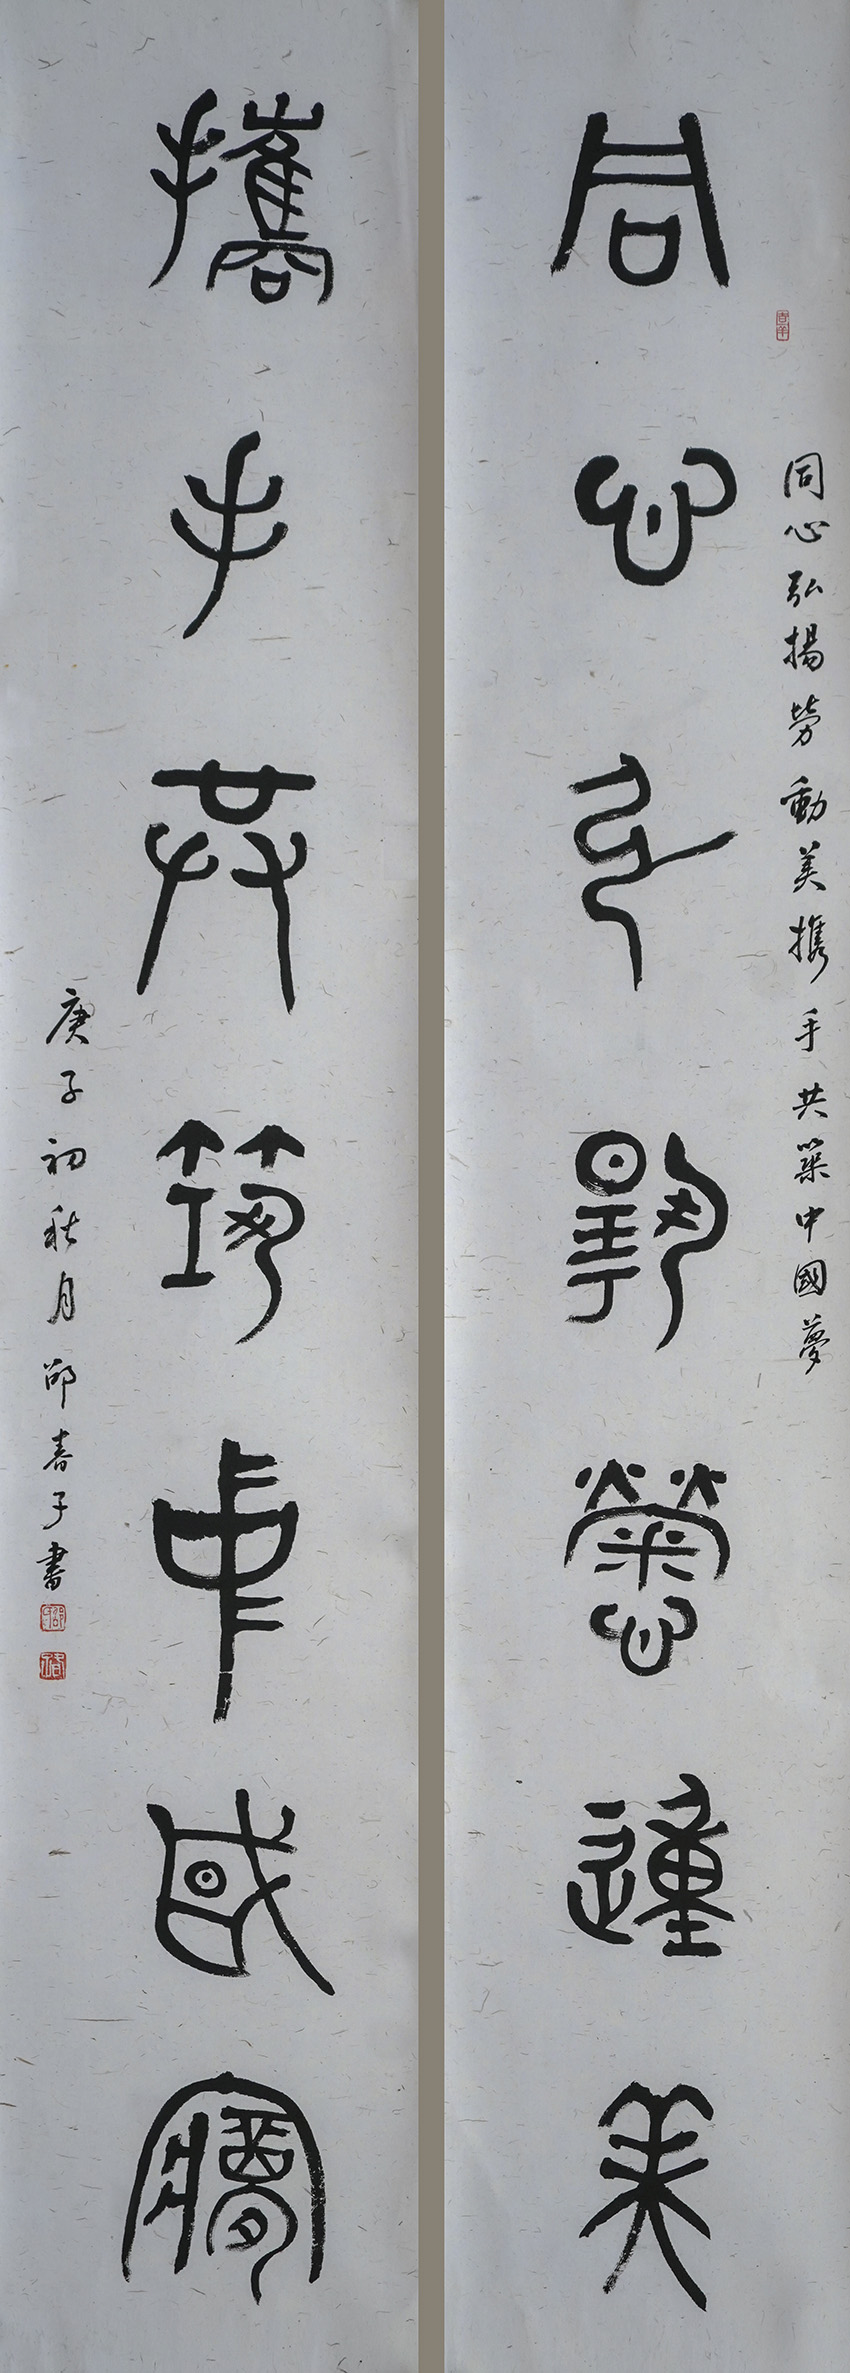 同心弘揚勞動美
同心弘揚勞動美攜手共築中國夢
攜手共築中國夢
庚子初秋月邵春子書